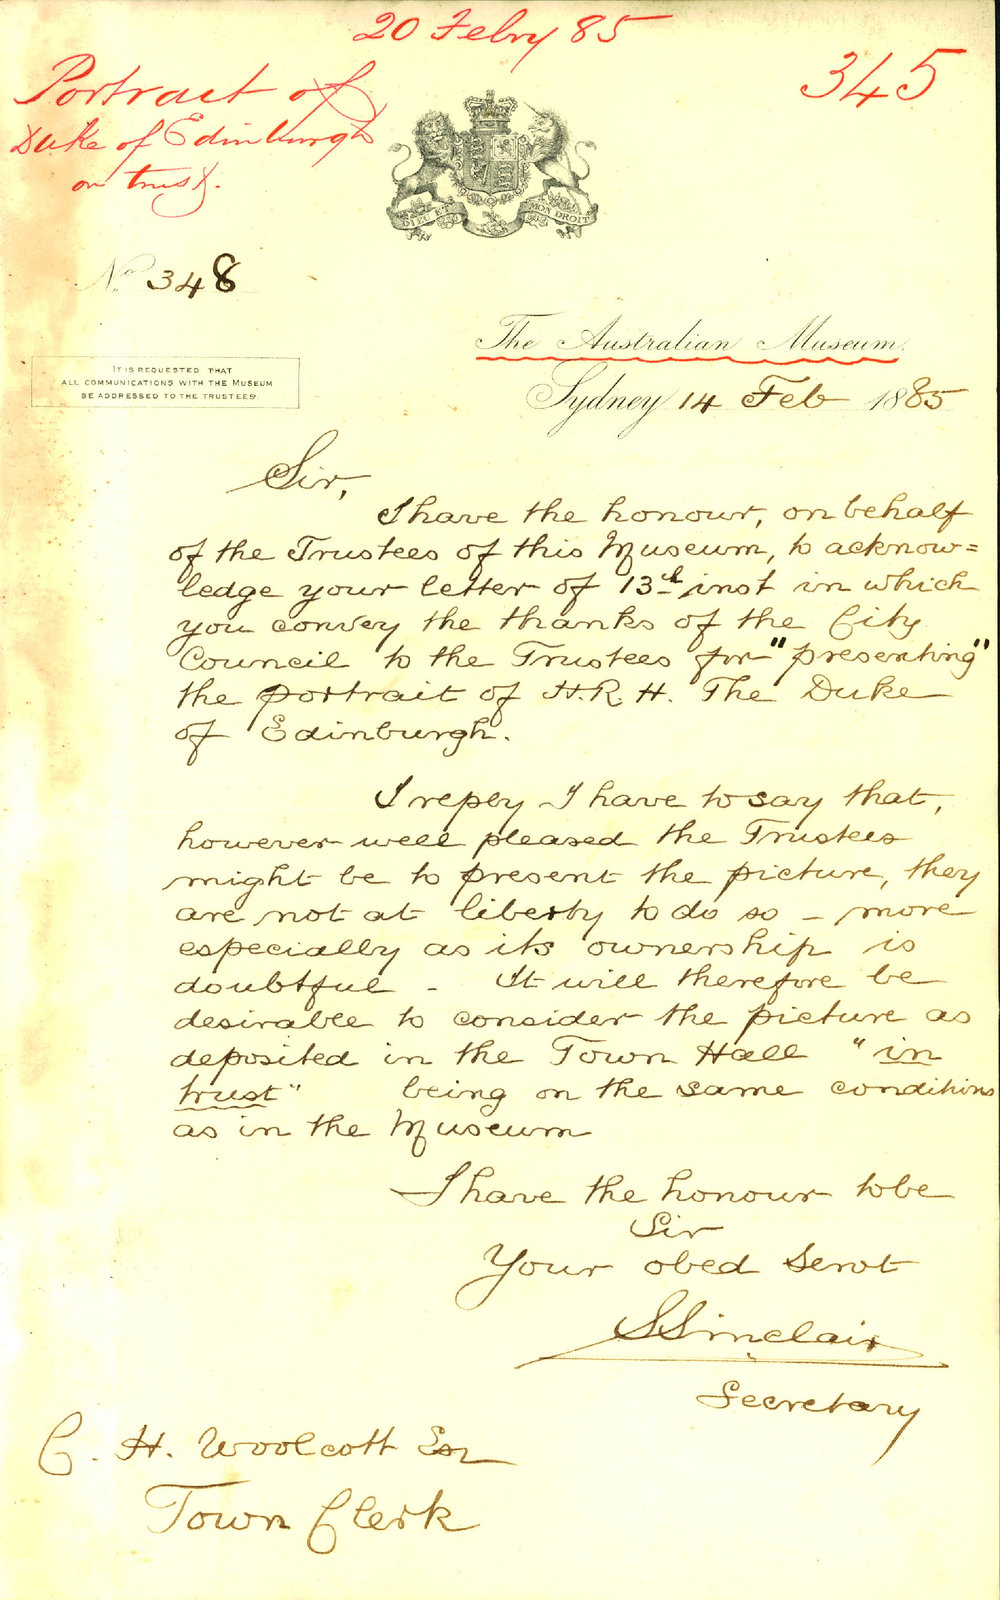 20 Febry 85
345
Portrait of
Duke of Edinburgh
on trust.
DIEU ET MON DROIT
No. 348
The Australian Museum.
IT IS REQUESTED THAT
ALL COMMUNICATIONS WITH THE MUSEUM
BE ADDRESSED TO THE TRUSTEES.
Sydney 14 Feb 1885
Sir,
I have the honour, on behalf
of the Trustees of this Museum, to acknow=
ledge your letter of 13th inst in which
you convey the thanks of the City
Council to the Trustees for "presenting"
the portrait of H.R.H. The Duke
of Edinburgh.
I reply I have to say that,
however well pleased the Trustees
might be to present the picture, they
are not at liberty to do so - more
especially as its ownership is
doubtful - It will therefore be
desirable to consider the picture as
deposited in the Town Hall "in
trust" being on the same conditions
as in the Museum
I have the honour to be
Sir
Your obed Servt
S Sinclair
Secretary
C. H. Woolcott Esq
Town Clerk